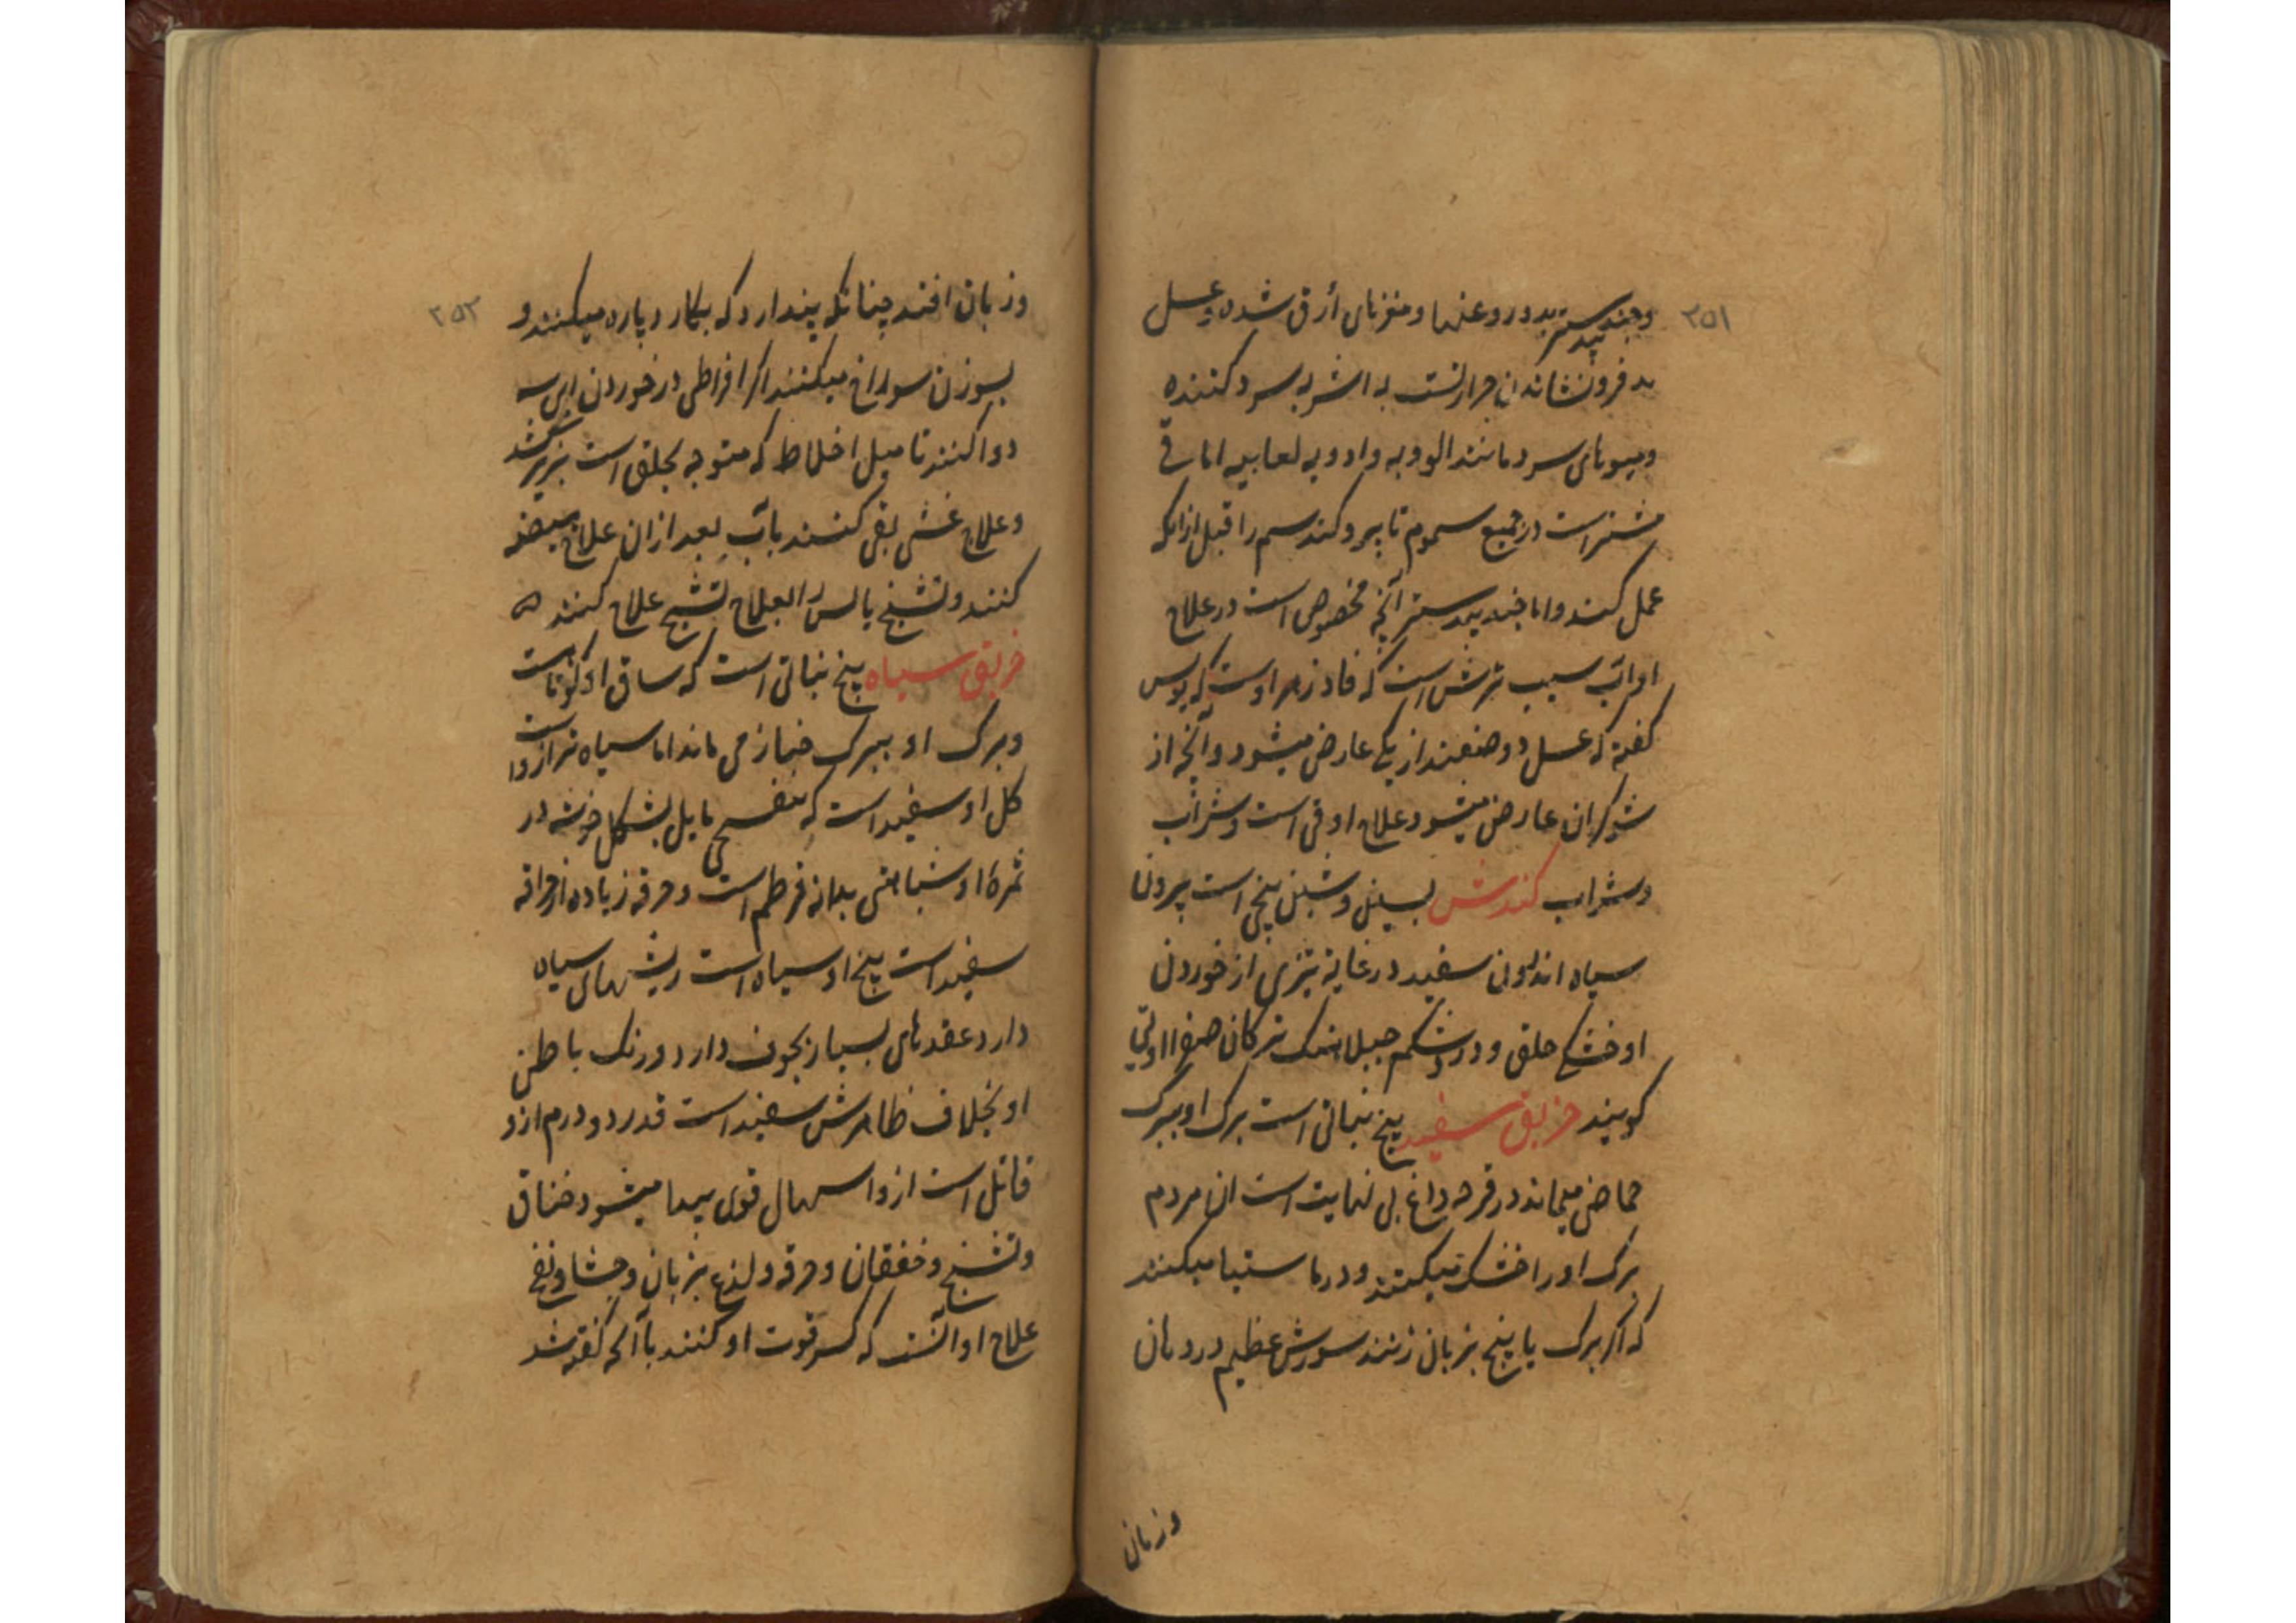 ۲۵۱
وجندبیدستر بدو روغنها و مغزهای أزق شده و عسل
بد فرونشاندن حرارتست به اشربه سرد کننده
ومیوهای سرد مانند الو و به وادویه لعابیه اما قی
مشترا ست در جمیع سموم تا بیرو کند سم را قبل از انکه
عمل کند واما جندبیدستر آنچه مخصوص است در علاج
او آب سیب ترش است که فادزهر اوست که یولس
کفته که عسل دو صنفند از یکی عارض میشود و آنچه از
شوکران عارض میشود علاج او قی است و شراب
وشراب کندش بیخی است بیرون
سیاه اندرون سفید در غایة تیزی از خوردن
او خشکی حلق و درد شکم
کویند خربق سفید بیخ نباتی است برک او ببرک
حماضی میماند در قرحه داغ بی نهایت است ان مردم
برک او را خشک میکنند و در ماستها میکنند
که اکر برک یا بیخ بزبان زنند سوزش عظیم در دهان
وزبان
۲۵۲
وزبان افتد چنانکه پندارد که بکارد پاره میکنند و
بسوزن سوراخ میکنند اکر افراطی در خوردن این
دوا کنند تا میل اخلاط که متوجه بحلق است بزیر کشد
وعلاج غشی بقی کنند باب بعد ازان علاج هیضه
کنند وتشنج یابس را بعلاج تشنج علاج کنند ه
خربق سیاه بیخ نباتی است که ساق او کوتاست
وبرک او ببرک خیار می ماند اما سیاه تر از وا ست
کل او سفید است که بنفسجی مایل بشکل خوشه در
ثمرهٔ او شباهتی بدانه قرطم است وحرقه زیاده از حراقه
سفید است بیخ او سیاه است ریشهای سیاه
دارد عقدهای بسیار بجوف دارد و رنک باطن
او بخلاف ظاهرش سفید است قدر دو درم ازو
قاتل است ازو اسهال قوی پیدا میشود خناق
وتشنج وخفقان وحرقه ولذع بزبان وجشا ونفخ
علاج او آنست که کسر قوت او کنند بآنچه کفته شد